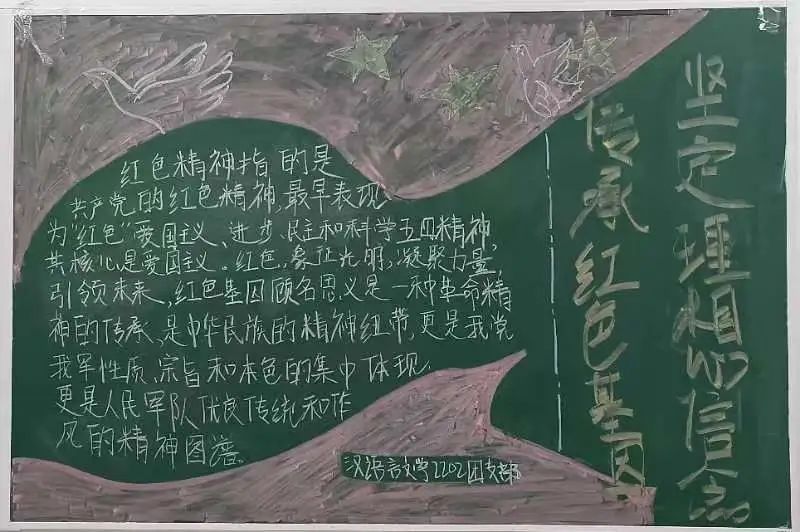 坚定理想信念
传承红色基因
红色精神指的是
共产党的红色精神,最早表现
为“红色”爱国主义、进步、民主和科学五四精神,
其核心是爱国主义。红色,象征光明,凝聚力量,
引领未来、红色基因顾名思义是一种革命精
神的传承,是中华民族的精神纽带,更是我党
我军性质、宗旨和本色的集中体现.
更是人民军队优良传统和作
风的精神图谱。
汉语言文学2202团支部